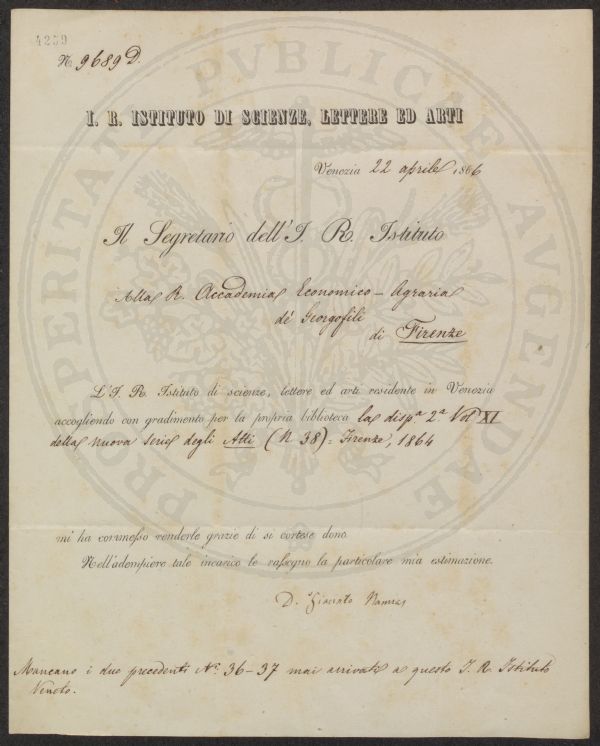 4259
N. 9689 D.
I. R. ISTITUTO DI SCIENZE, LETTERE ED ARTI
Venezia 22 aprile 1866
Il Segretario dell'I. R. Istituto
Alla R. Accademia Economico - Agraria
de' Georgofili
di Firenze
L'I. R. Istituto di scienze, lettere ed arti residente in Venezia
accogliendo con gradimento per la propria biblioteca la disp.a 2.a Vol XI
della nuova serie degli Atti (N 38) = Firenze, 1864
mi ha commesso renderle grazie di sì cortese dono.
Nell'adempiere tale incarico le rassegno la particolare mia estimazione.
D. Giacinto Namias
Mancano i due precedenti N.i 36-37 mai arrivati a questo I. R. Istituto
Veneto.
PROSPERITATI PVBLICAE AVGENDAE